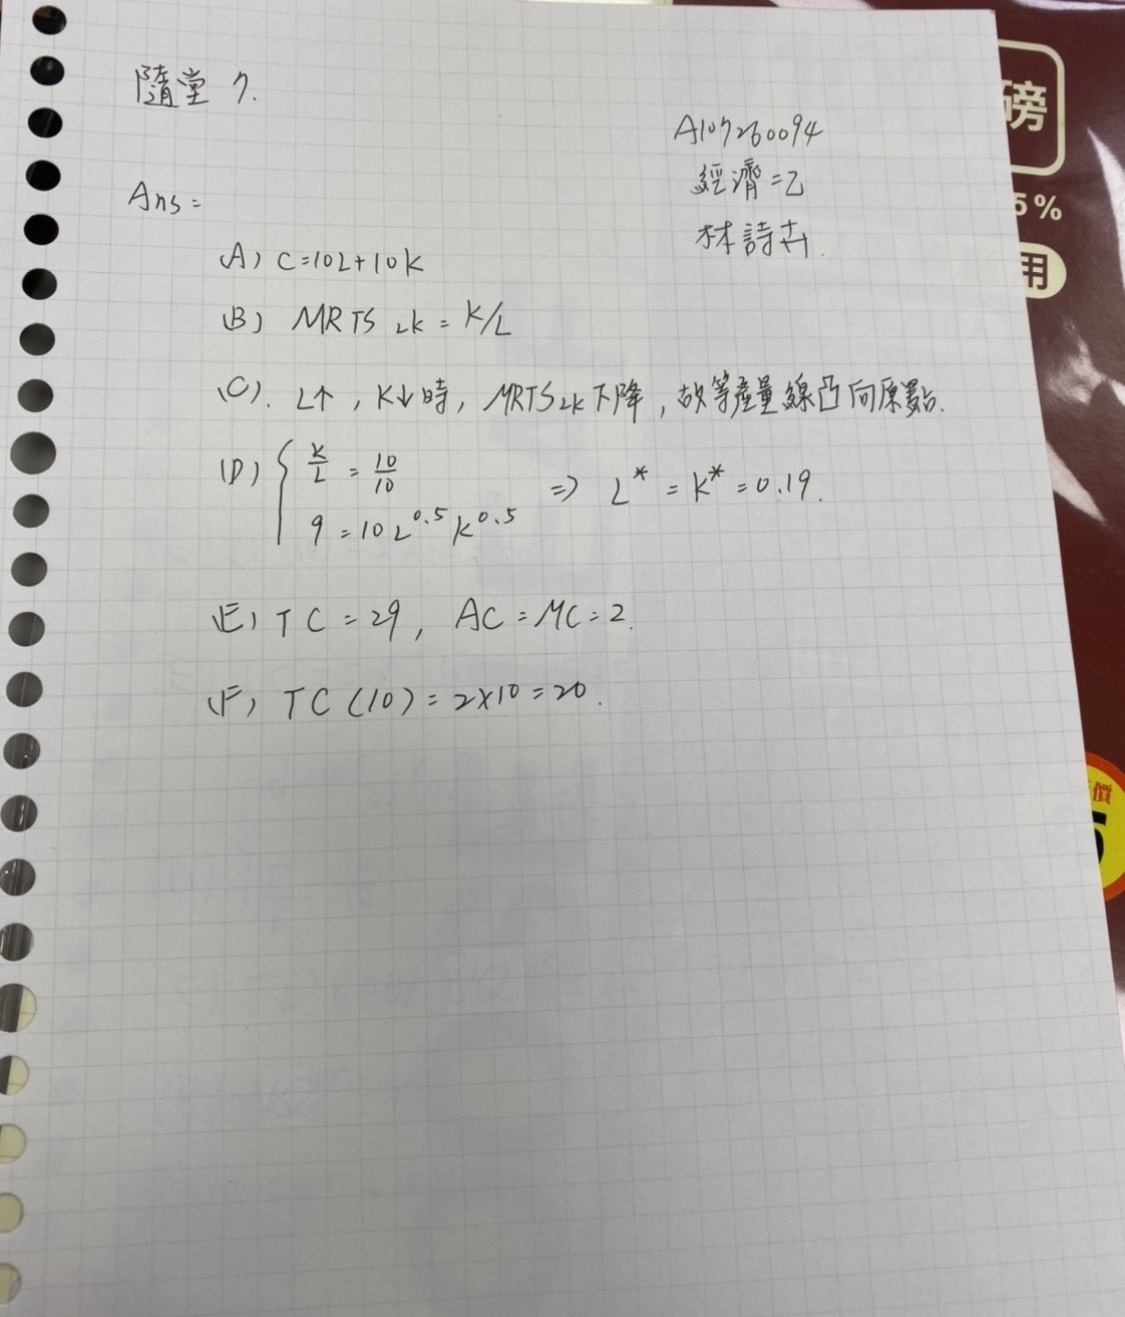 隨堂 7.
A107260094
經濟二乙
林詩卉.
Ans =
(A) C=10L+10K
(B) MRTS LK = K/L
(C). L↑, K↓時, MRTS LK 下降, 故等產量線凸向原點.
(D) { K/L = 10/10
9 = 10 L^0.5 K^0.5 => L* = K* = 0.19.
(E) TC = 29, AC = MC = 2.
(F) TC (10) = 2×10 = 20.
磅
5%
用
價
5